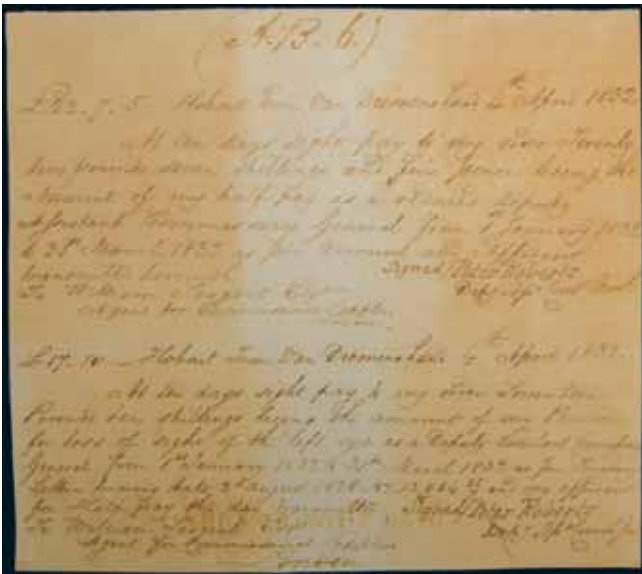 (A. B. 6.)
£22. 7. 5 Hobart Town Van Diemens Land 4th April 1832
At ten days sight pay to my order Twenty
two pounds seven shillings and five pence being the
amount of my half pay as a retired Deputy
Assistant Commissary General from 1st January 1832
to 31st March 1832 as per account and affidavit
transmitted herewith
Signed/ Peter Roberts
To William Sargent Esqre
Agent for Commissariat
£17. 10 Hobart Town Van Diemens Land 4th April 1832
At ten days sight pay to my order Seventeen
Pounds ten shillings being the amount of my Pension
for loss of sight of the left eye as a Deputy Assistant
General from 1st January 1832 to 31st March 1832 as per
Letter bearing date 2d August 1828 and my affidavit
for Half pay this day transmitted
Signed/ Peter Roberts
To William Sargent
Agent for Commissariat